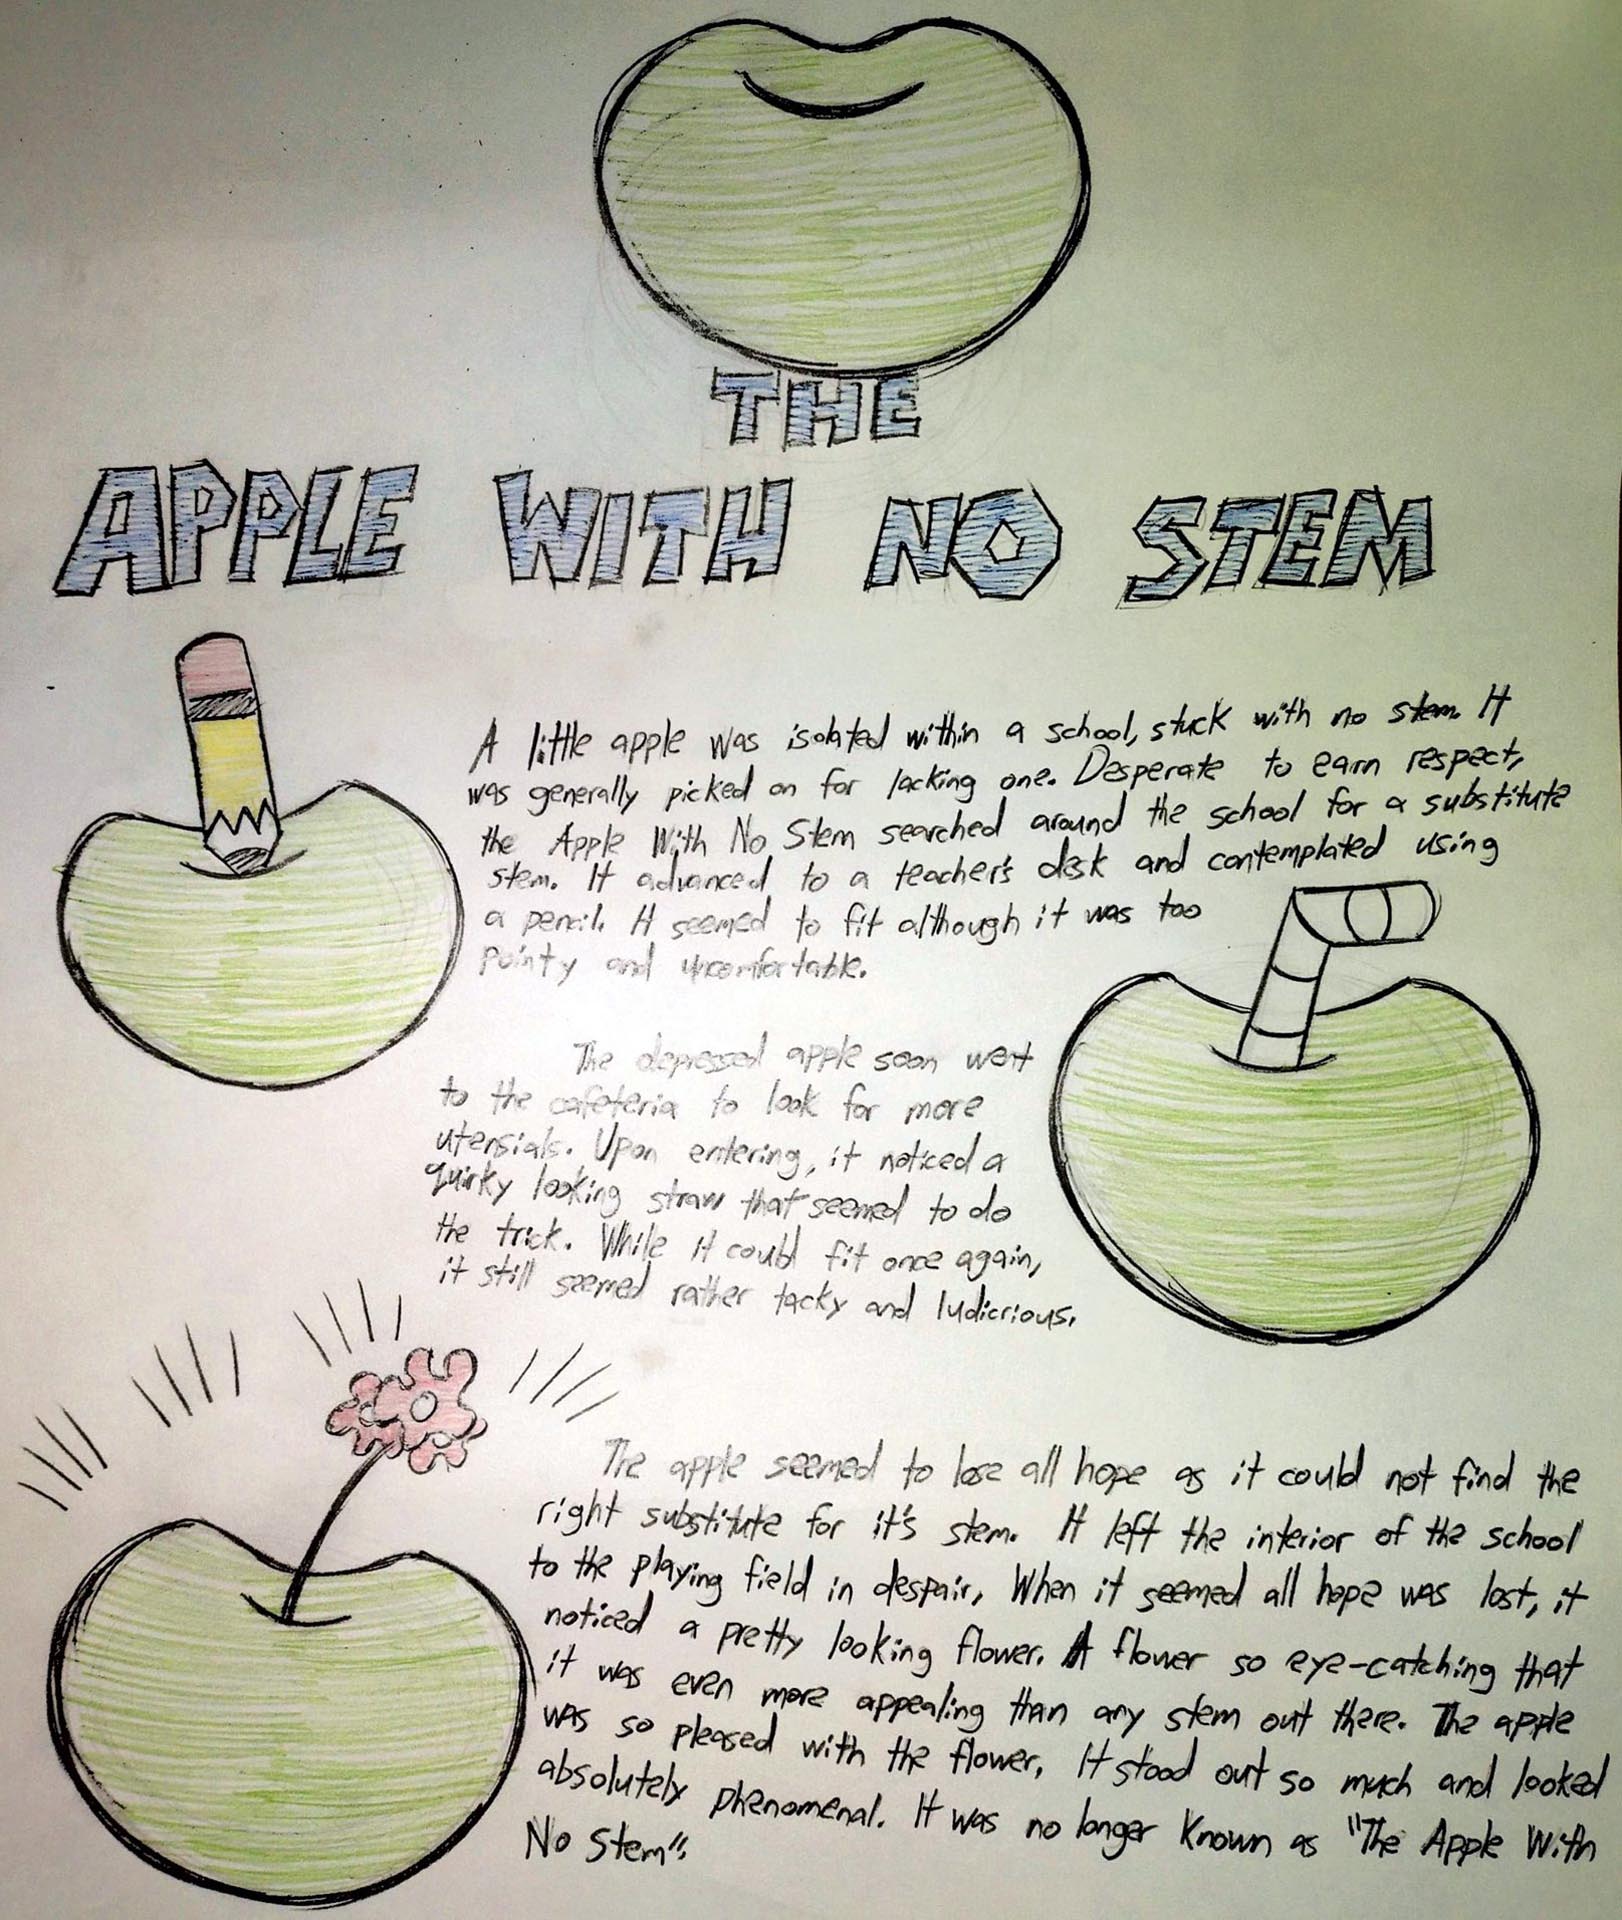 THE
APPLE WITH NO STEM
A little apple was isolated within a school, stuck with no stem. It
was generally picked on for lacking one. Desperate to earn respect,
the Apple With No Stem searched around the school for a substitute
stem. It advanced to a teacher's desk and contemplated using
a pencil. It seemed to fit although it was too
pointy and uncomfortable.
The depressed apple soon went
to the cafeteria to look for more
utensials. Upon entering, it noticed a
quirky looking straw that seemed to do
the trick. While it could fit once again,
it still seemed rather tacky and ludicrious.
The apple seemed to lose all hope as it could not find the
right substitute for it's stem. It left the interior of the school
to the playing field in despair, When it seemed all hope was lost, it
noticed a pretty looking flower. A flower so eye-catching that
it was even more appealing than any stem out there. The apple
was so pleased with the flower, It stood out so much and looked
absolutely phenomenal. It was no longer known as "The Apple With
No Stem".